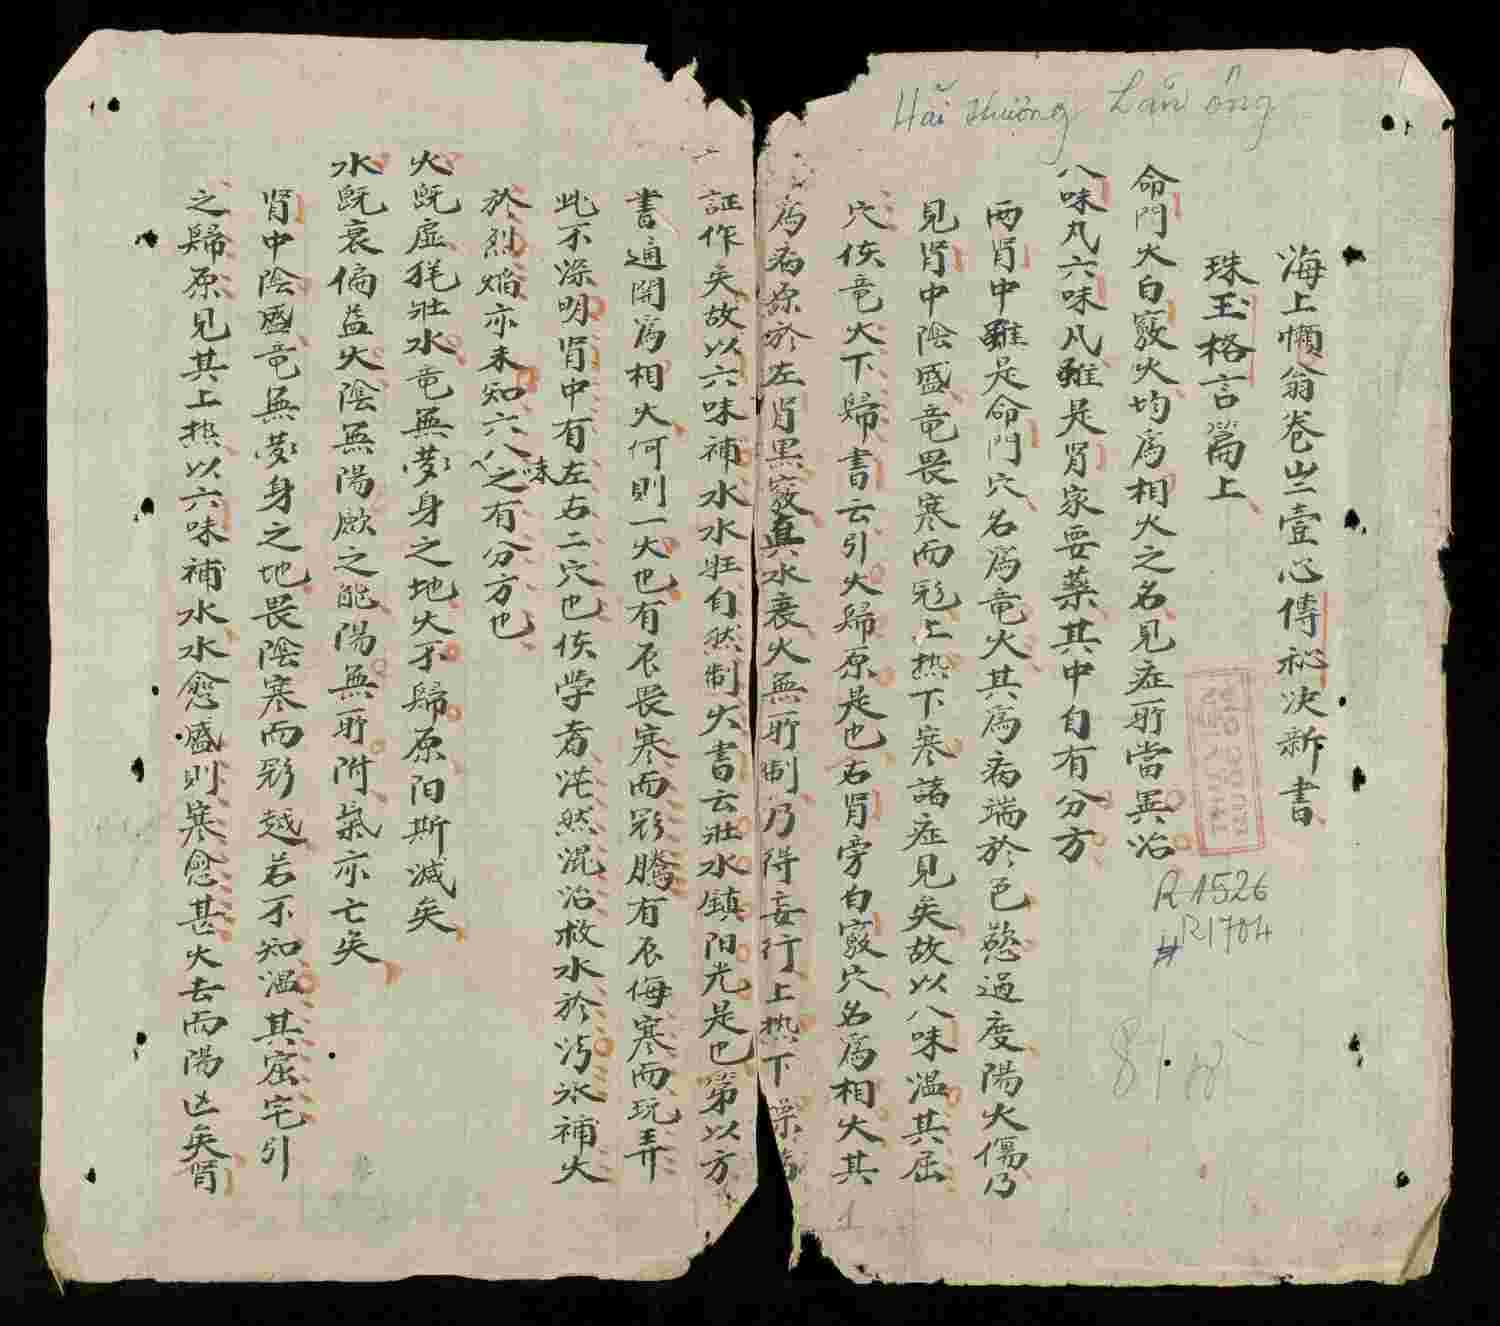 Hải Thượng Lãn Ông
海上懶翁卷㞢壹心傳祕决新書
珠玉格言篇上
命門火白竅火均爲相火之名見症所當異治
八味丸六味凡雖是肾家要藥其中自有分方
兩肾中雖是命門穴名爲竜火其爲病端於色慾過度陽火傷乃
見肾中陰盛竜畏寒而彩上热下寒諸症見矣故以八味溫其屈
穴俟竜火下歸書云引火歸原是也右肾旁白竅穴名爲相火其
爲病源於左肾黑竅真水衰火無所制乃得妄行上热下
証作矣故以六味補水水旺自然制火書云壯水鎮阳光是也第以方
書通開爲相火何則一火也有辰畏寒而彩騰有辰侮寒而玩弄
此不深明肾中有左右二穴也俟学者茫然混治救水於氵氷補火
於烈焰亦未知六八味之有分方也
火旣虚耗壯水竜無夢身之地火不歸原阳斯滅矣
水旣衰偏益火陰無陽厥之能陽無所附氣亦亡矣
肾中陰盛竜無夢身之地畏陰寒而彩越若不知溫其窟宅引
之歸原見其上热以六味補水水愈盛則寒愈甚火去而陽亡矣肾
R1526
R1704
1